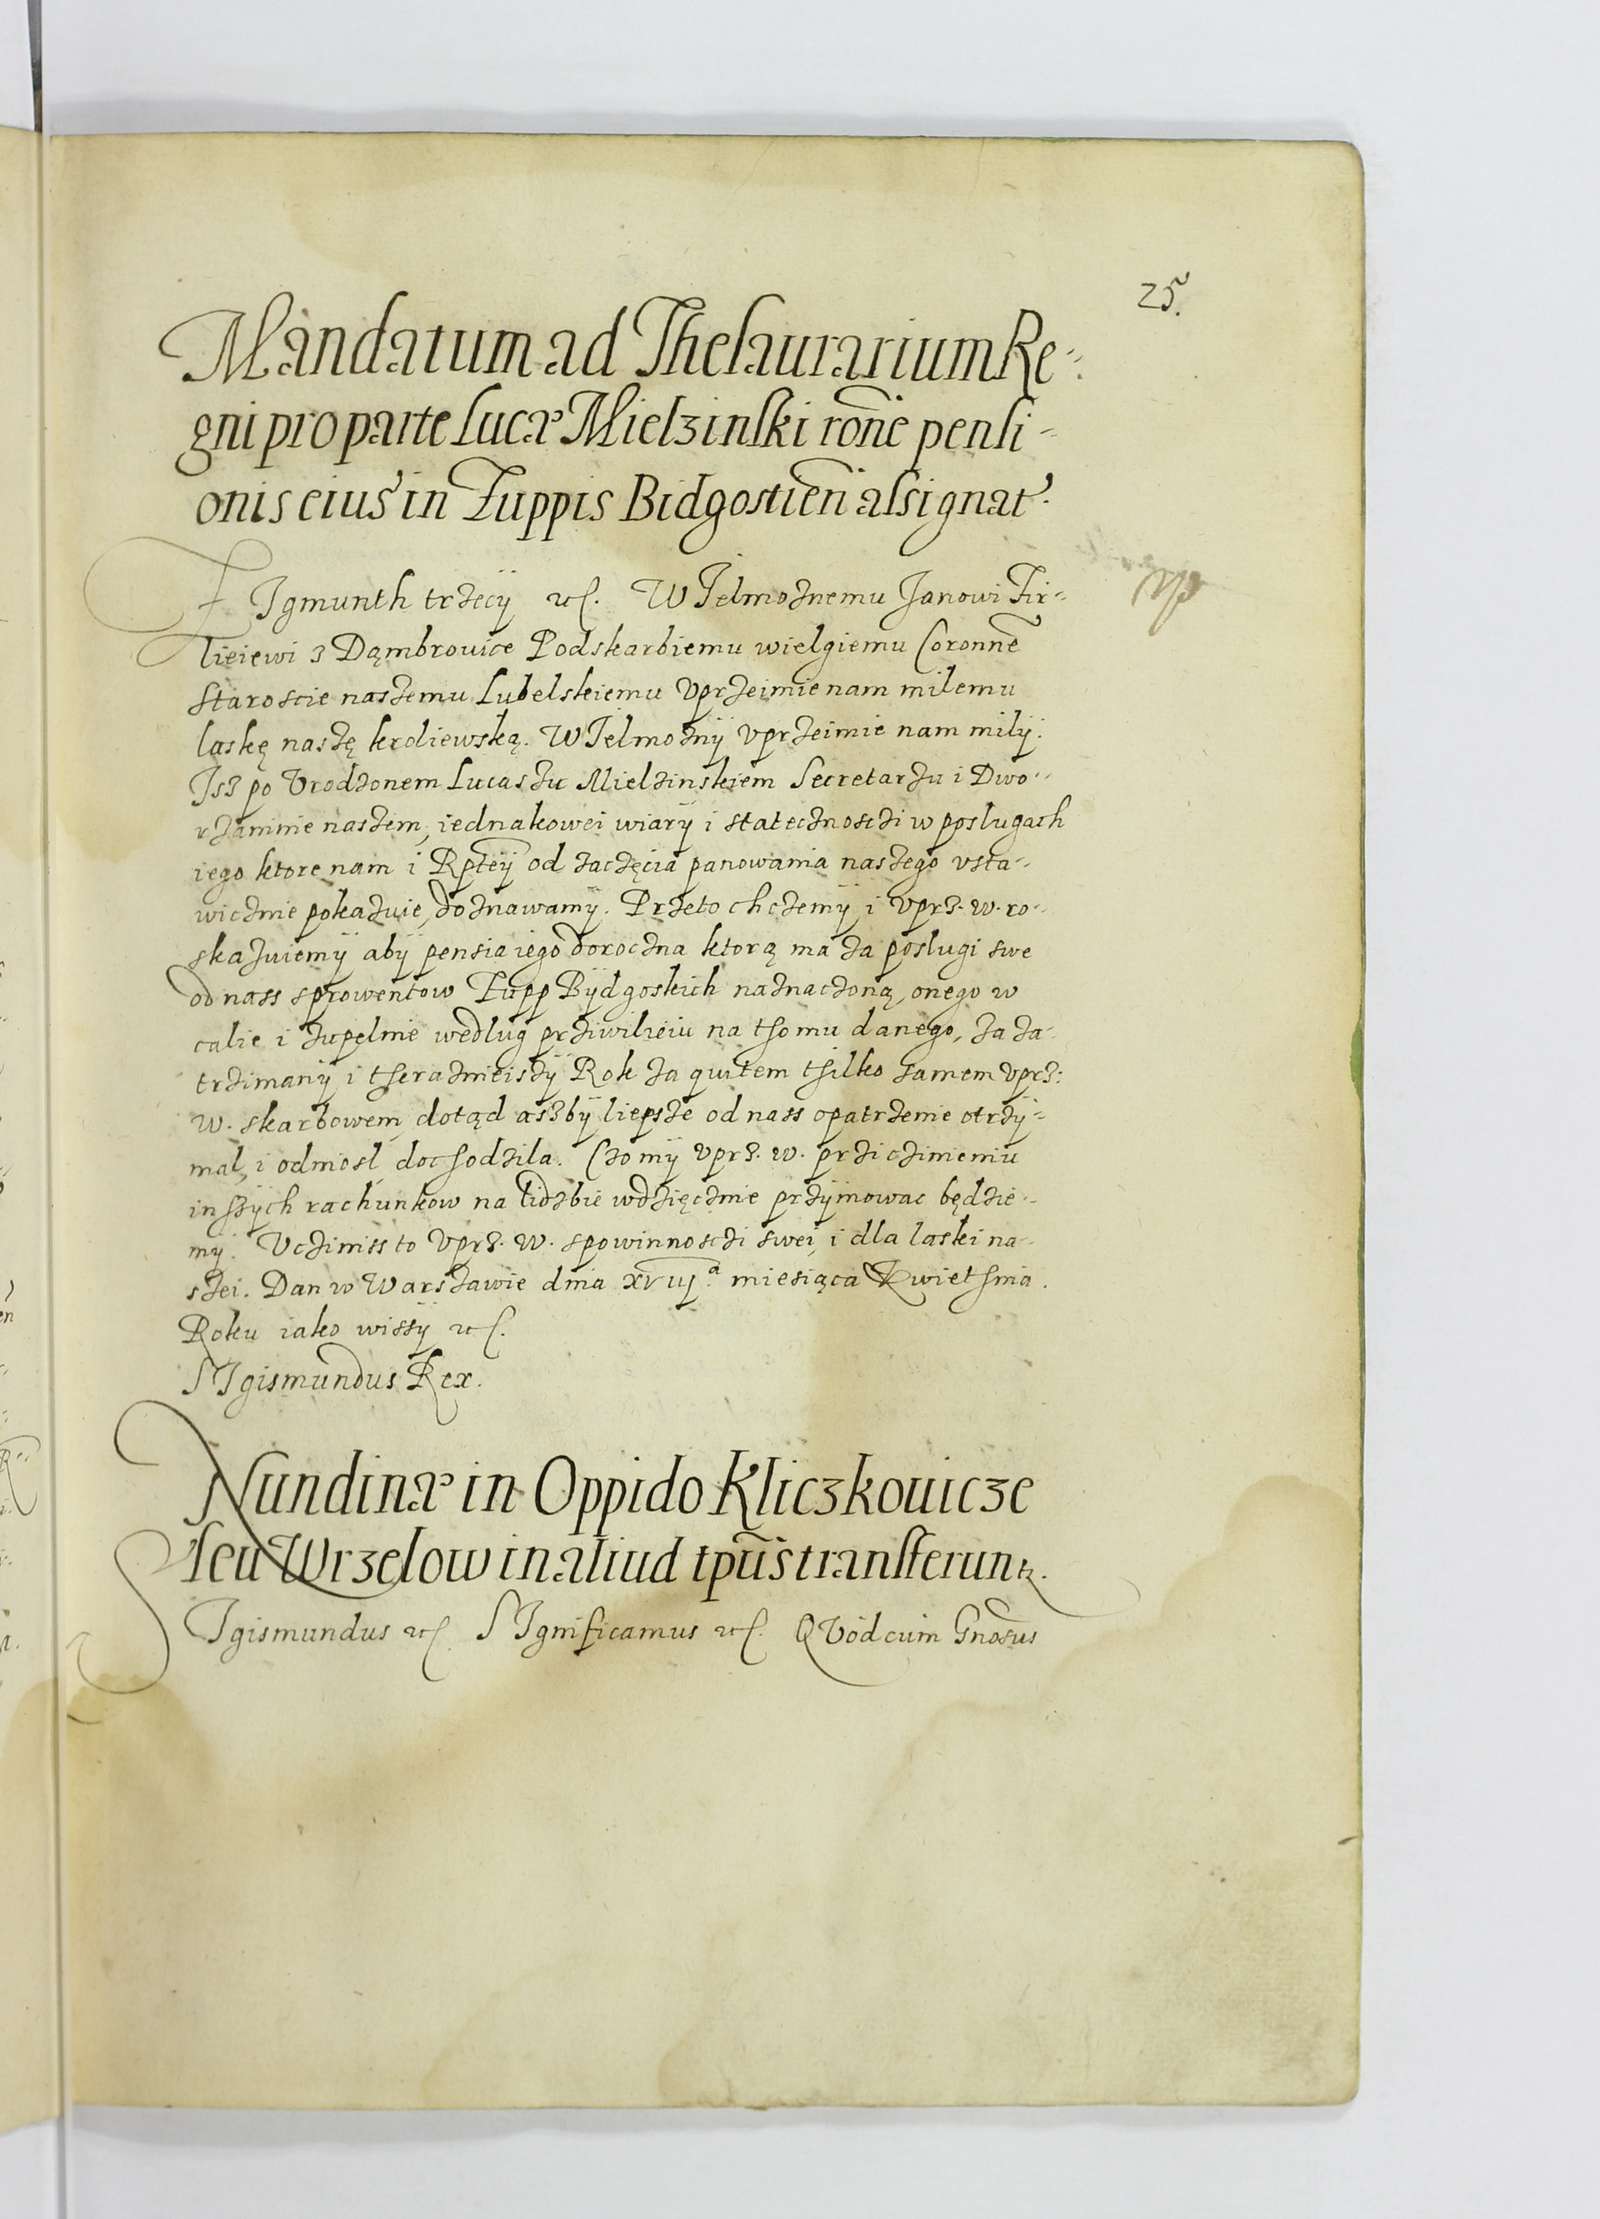 25.
Mandatum ad Thesaurarium Re-
gni pro parte Lucæ Mielzinski rõne pensi-
onis eius in Zuppis Bidgostień assignat.
ZJgmunth trzecÿ etc. WJelmoznemu Janowi Fir-
lieiewi z Dąmbrowice Podskarbiemu wielgiemu Coronne
Staroscie naszemu Lubelskiemu Vprzeimie nam milemu
laskę naszę kroliewską. WJelmoznÿ Vprzeimie nam milÿ.
Jsz po Vrodzonem Lucaszu Mielzinskiem Secretarzu i Dwo-
rzaninie naszem, iednakowei wiarÿ i statecznosczi w poslugach
iego ktore nam i Rptėÿ od zaczęcia panowania naszego vsta-
wicznie pokazuie, doznawamÿ. Przeto chczemÿ i Vprz. w. ro-
skazuiemÿ abÿ pensia iego doroczna ktorą ma za poslugi swe
od nass sprowentow Zupp Bÿdgoskich naznaczoną, onego w
calie i zupelnie wedlug prziwilieiu na tho mu danego, za za-
trzimanÿ i theraznieiszÿ Rok za quitem thilko samem Vprz:
w. skarbowem, dotąd aszbÿ liepsze od nass opatrzenie otrzÿ-
mal, i odniosl, dochodzila. Czo mÿ Vprz. w. przi czinieniu
inszÿch rachunkow na lidzbie wdzięcznie przÿmowac będzie-
mÿ. Vcziniss to Vprz. w. spowinnosczi swei, i dla laski na-
szei. Dan w Warszawie dnia xvııȷ.ª miesiąca Kwiethnia.
Roku iako wissÿ etc.
SJgismundus Rex.
Nundinæ in Oppido Kliczkouicze
seu Wrzelow in aliud tpus transferunt.
SJgismundus etc. SJgnificamus etc. QVod cum Gnosus